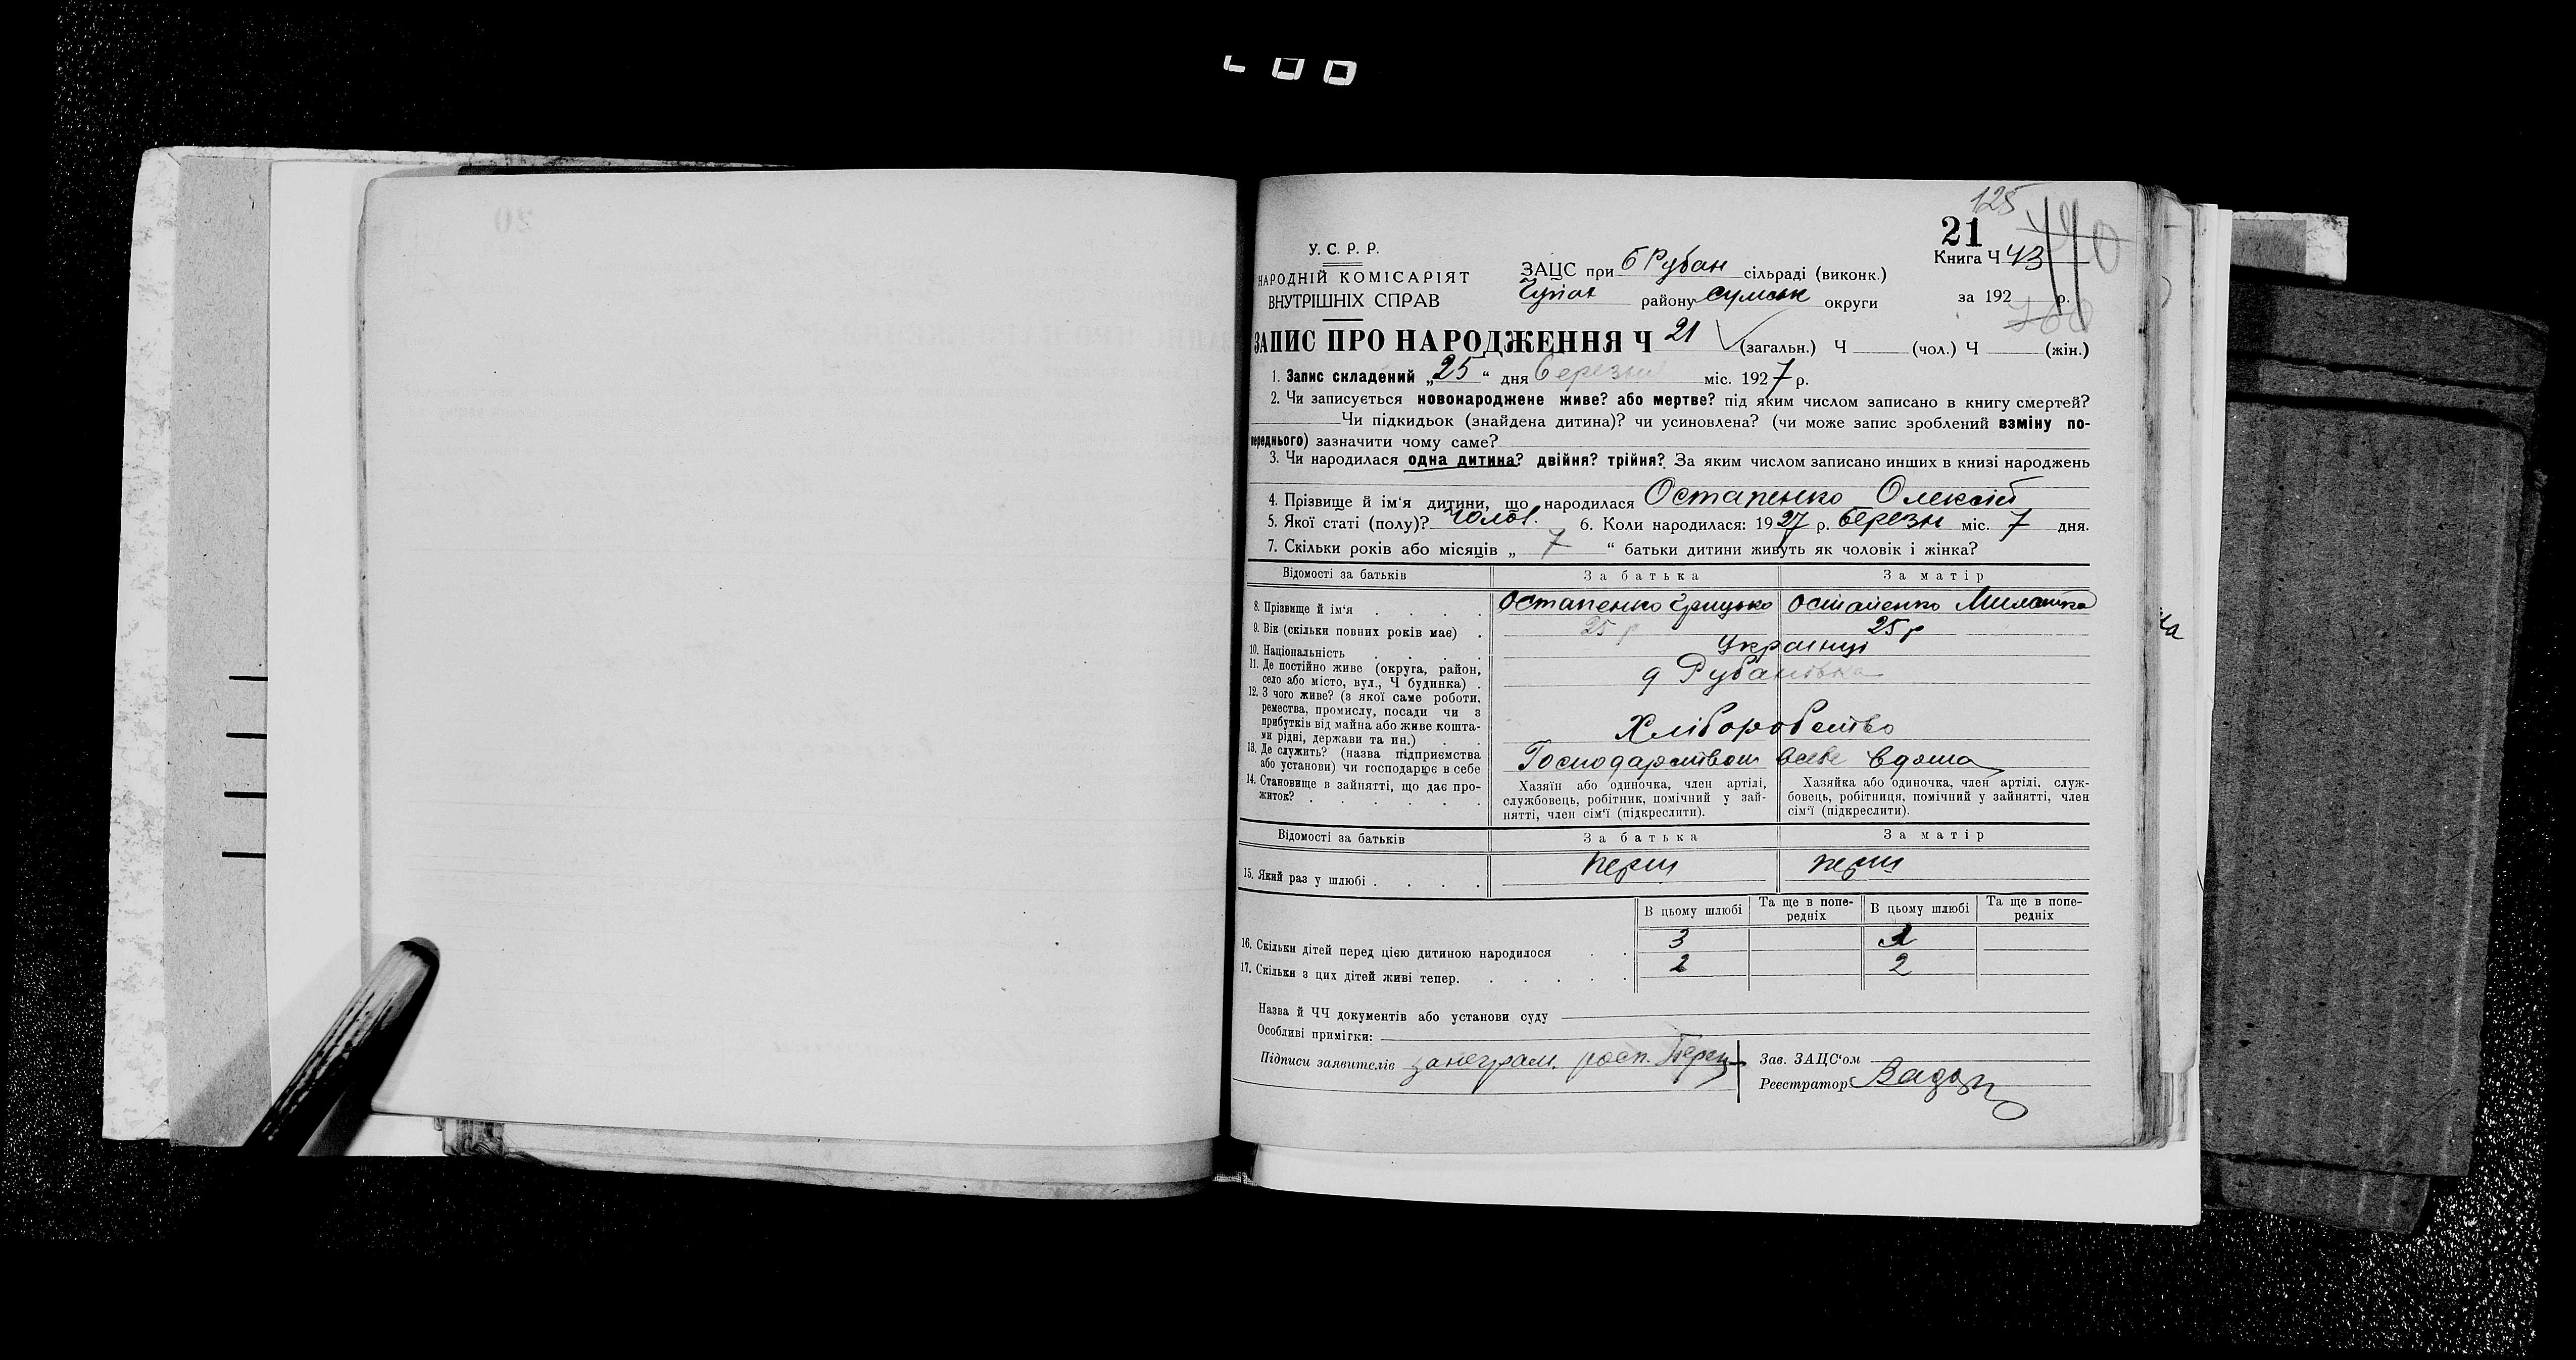 125
21
У. С. Р. Р.
НАРОДНІЙ КОМІСАРІЯТ
ВНУТРІШНІХ СПРАВ
ЗАЦС при Б Рубан сільраді (виконк.)
району Сумськ округи
Книга Ч 43
за 192 р.
ЗАПИС ПРО НАРОДЖЕННЯ Ч 21 (загальн.) Ч (чол.) Ч (жін.)
1. Запис складений „25“ дня березня міс. 1927 р.
2. Чи записується новонароджене живе? або мертве? під яким числом записано в книгу смертей?
Чи підкидьок (знайдена дитина)? чи усиновлена? (чи може запис зроблений взміну по-
переднього) зазначити чому саме?
3. Чи народилася одна дитина? двійня? трійня? За яким числом записано инших в книзі народжень
4. Прізвище й ім‘я дитини, що народилася Остапенко Олексій
5. Якої статі (полу)? чолов. 6. Коли народилася: 1927 р. березн міс. 7 дня.
7. Скільки років або місяців „ 7 “ батьки дитини живуть як чоловік і жінка?
Відомості за батьків За батька За матір
8. Прізвище й ім‘я . . . . Остапенко Грицько Остапенко Милашка
9. Вік (скільки повних років має) . 25 р 25 р
10. Національність . . . . Українці
11. Де постійно живе (округа, район,
село або місто, вул., Ч будинка) . д Рубанівка
12. З чого живе? (з якої саме роботи,
ремества, промислу, посади чи з
прибутків від майна або живе кошта-
ми рідні, держави та ин.) . . Хліборобство
13. Де служить? (назва підприємства
або установи) чи господарює в себе Господарством в себе вдома
14. Становище в зайнятті, що дає про-
житок? . . . . . .
Хазяїн або одиночка, член артілі,
службовець, робітник, помічний у зай-
нятті, член сім‘ї (підкреслити).
Хазяйка або одиночка, член артілі, служ-
бовець, робітниця, помічний у зайнятті, член
сім‘ї (підкреслити).
Відомості за батьків За батька За матір
15. Який раз у шлюбі . . . . перш перш
В цьому шлюбі Та ще в попе-
редніх В цьому шлюбі Та ще в попе-
редніх
16. Скільки дітей перед цією дитиною народилося . . 3
17. Скільки з цих дітей живі тепер. . . . . . 2 2
Назва й ЧЧ документів або установи суду
Особливі примітки:
Підписи заявителів за неграм. росп.
Зав. ЗАЦС‘ом
Реєстратор